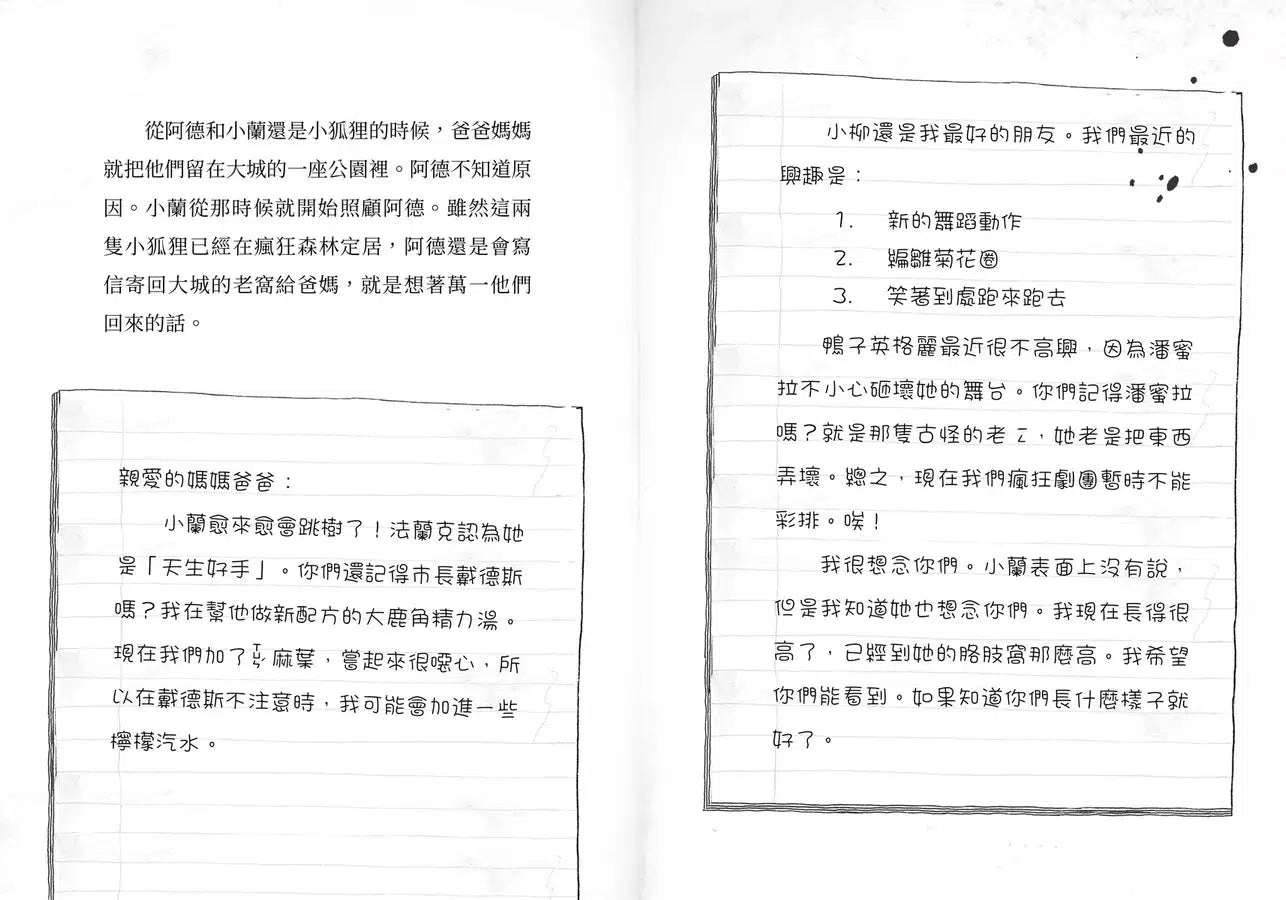 從阿德和小蘭還是小狐狸的時候，爸爸媽媽
就把他們留在大城的一座公園裡。阿德不知道原
因。小蘭從那時候就開始照顧阿德。雖然這兩
隻小狐狸已經在瘋狂森林定居，阿德還是會寫
信寄回大城的老窩給爸媽，就是想著萬一他們
回來的話。
親愛的媽媽爸爸：
小蘭愈來愈會跳樹了！法蘭克認為她
是「天生好手」。你們還記得市長戴德斯
嗎？我在幫他做新配方的大鹿角精力湯。
現在我們加了ㄒㄩㄣˊ麻葉，嘗起來很噁心，所
以在戴德斯不注意時，我可能會加進一些
檸檬汽水。
小柳還是我最好的朋友。我們最近的
興趣是：
1. 新的舞蹈動作
2. 編雛菊花圈
3. 笑著到處跑來跑去
鴨子英格麗最近很不高興，因為潘蜜
拉不小心砸壞她的舞台。你們記得潘蜜拉
嗎？就是那隻古怪的老ㄧㄥ，她老是把東西
弄壞。總之，現在我們瘋狂劇團暫時不能
彩排。唉！
我很想念你們。小蘭表面上沒有說，
但是我知道她也想念你們。我現在長得很
高了，已經到她的胳肢窩那麼高。我希望
你們能看到。如果知道你們長什麼樣子就
好了。